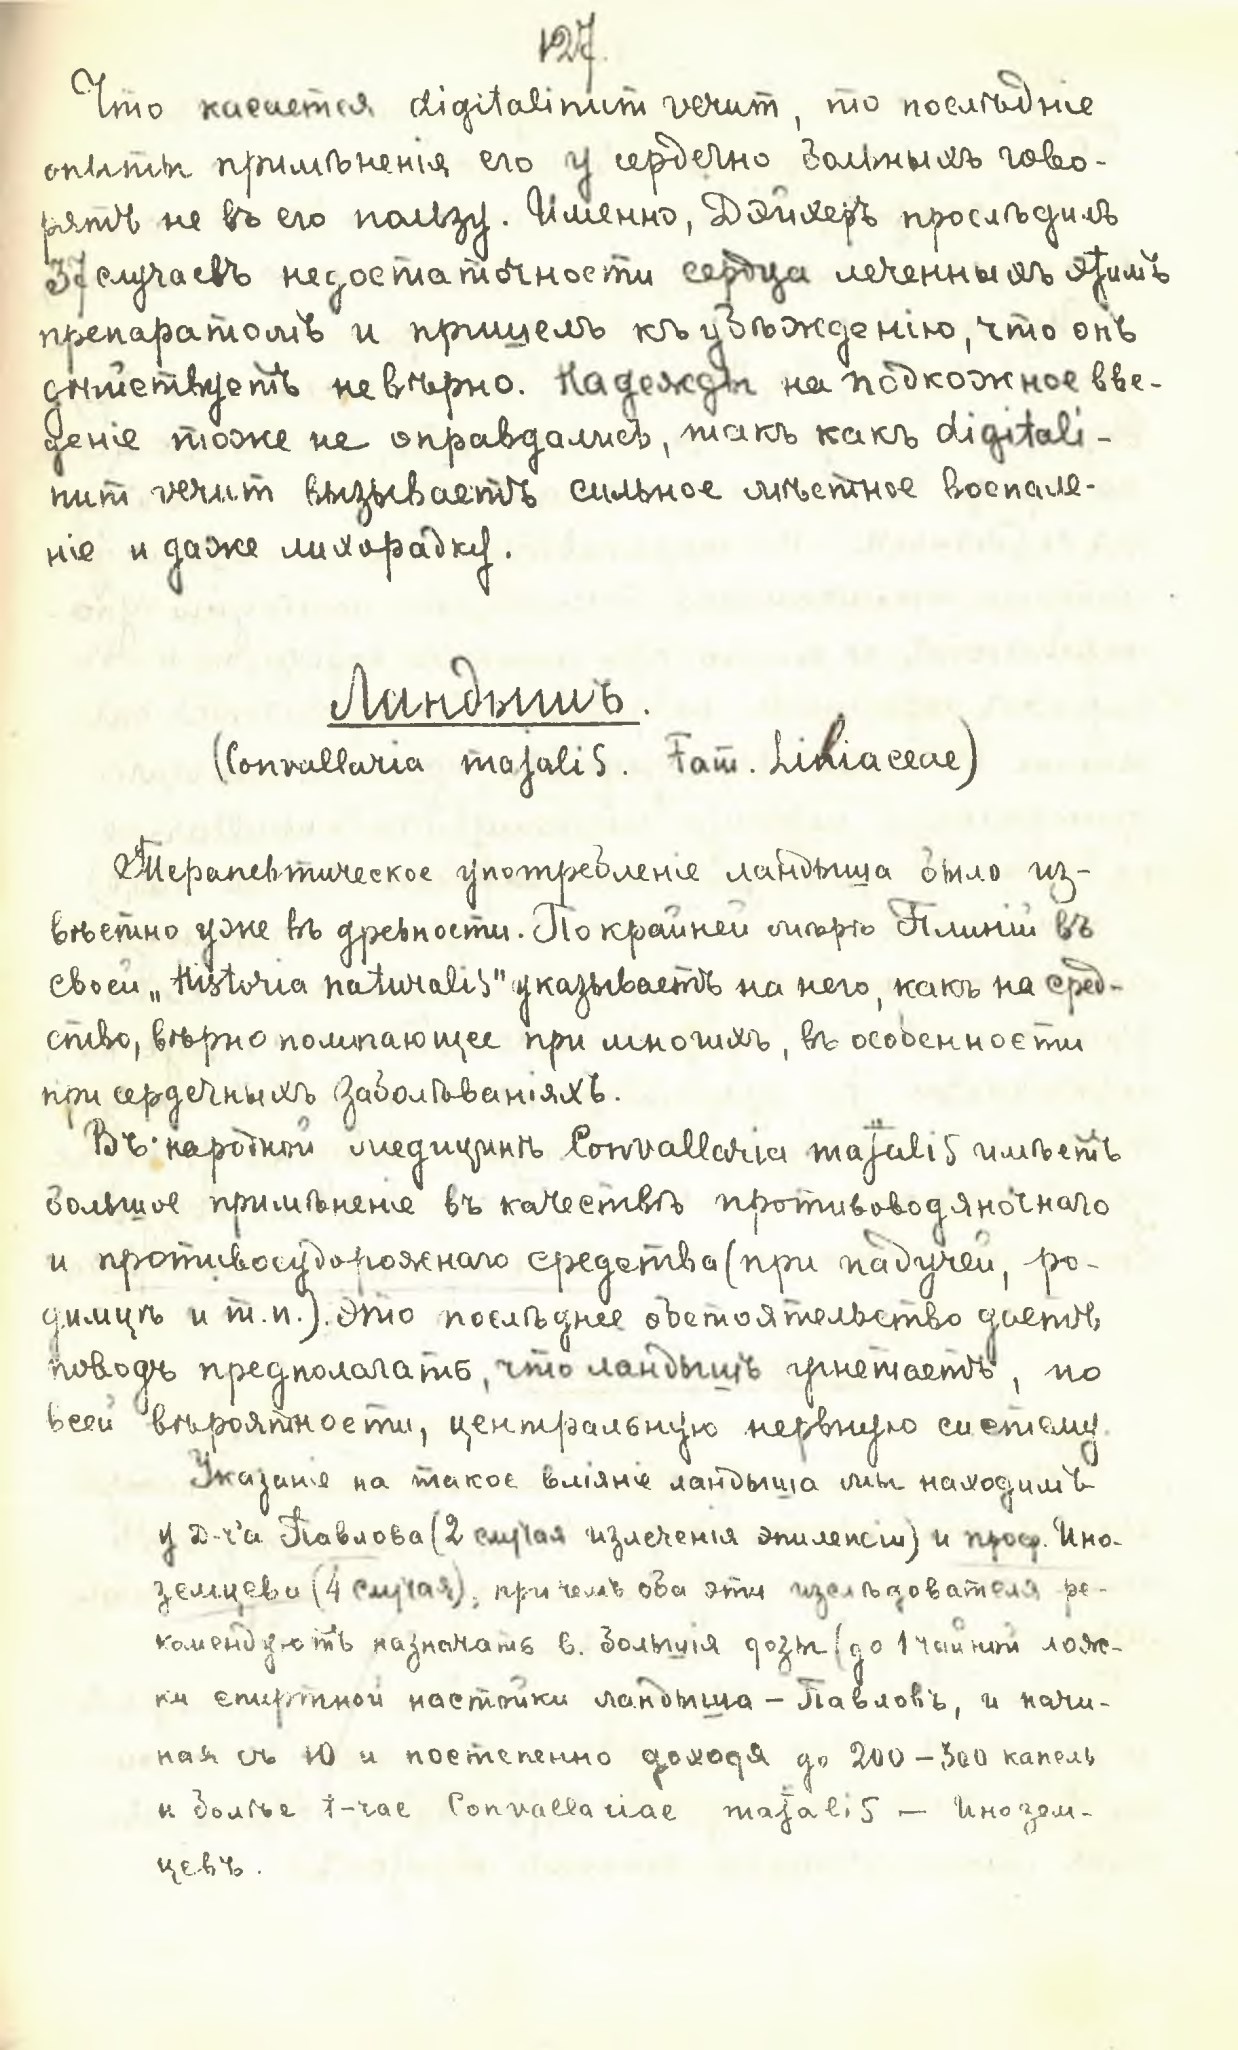 127.
Что касается digitalinum verum, то послѣднiе
опыты примѣненiя его у сердечно больныхъ гово-
рятъ не въ его пользу. Именно, Дэйхеръ прослѣдилъ
37 случаевъ недостаточности сердца леченныхъ этимъ
препаратомъ и пришелъ къ убѣжденiю, что онъ
дѣйствуетъ невѣрно. Надежды на подкожное вве-
денiе тоже не оправдались, такъ какъ digitali-
num verum вызываетъ сильное мѣстное воспале-
нiе и даже лихорадку.
Ландышъ.
(Convallaria majalis. Fam. Liliaceae)
Терапевтическое употребленiе ландыша было из-
вѣстно уже въ древности. По крайней мѣрѣ Плинiй въ
своей „Historia naturalis" указываетъ на него, какъ на сред-
ство, вѣрно помогающее при многихъ, въ особенности
при сердечныхъ заболѣванiяхъ.
Въ народной медицинѣ Convallaria majalis имѣетъ
большое примѣненiе въ качествѣ противоводяночнаго
и противосудорожнаго средства (при падучей, ро-
димцѣ и т.п.). Это послѣднее обстоятельство даетъ
поводъ предполагать, что ландышъ угнетаетъ, по
всей вѣроятности, центральную нервную систему.
Указанiе на такое влiянiе ландыша мы находимъ
у д-ра Павлова (2 случая излеченiя эпилепсiи) и проф. Ино-
земцева (4 случая), при чемъ оба эти изслѣдователя ре-
комендуютъ назначать в. большiя дозы (до 1 чайной лож-
ки спиртной настойки ландыша – Павловъ, и начи-
ная съ 10 и постепенно доходя до 200 – 300 капель
и болѣе t-rae Convallariae majalis — Инозем-
цевъ.